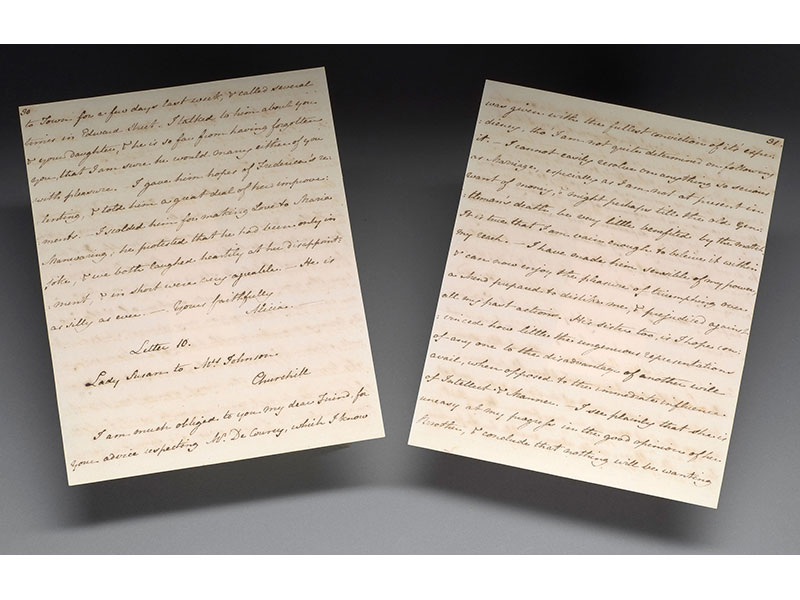 30
to Town for a few days last week, & called several
times in Edward Street. I talked to him about you
& your daughter, & he is so far from having forgotten
you, that I am sure he would marry either of you
with pleasure. — I gave him hopes of Frederica's re-
lenting, & told him a great deal of her improve-
ments. — I scolded him for making Love to Maria
Manwaring; he protested that he had been only in
joke, & we both laughed heartily at her disappoint-
ment, & in short were very agreable. — He is
as silly as ever. — Yours faithfully
Alicia. —
Letter 10.
Lady Susan to Mrs Johnson
Churchill
I am much obliged to you my dear Friend, for
your advice respecting Mr. De Courcy, which I know
31
was given with the fullest conviction of its expe-
diency, tho' I am not quite determined on following
it. — I cannot easily resolve on anything so serious
as Marriage, especially as I am not at present in
want of money, & might perhaps till the old Gen-
tleman's death, be very little benefited by the match.
It is true that I am vain enough to beleive it within
my reach. — I have made him sensible of my power,
& can now enjoy the pleasure of triumphing over
a Mind prepared to dislike me, & prejudiced against
all my past actions. His sister too, is I hope con-
vinced how little the ungenerous representations
of any one to the disadvantage of another will
avail, when opposed to the immediate influence
of Intellect & Manner. — I see plainly that she is
uneasy at my progress in the good opinion of her
Brother, & conclude that nothing will be wanting